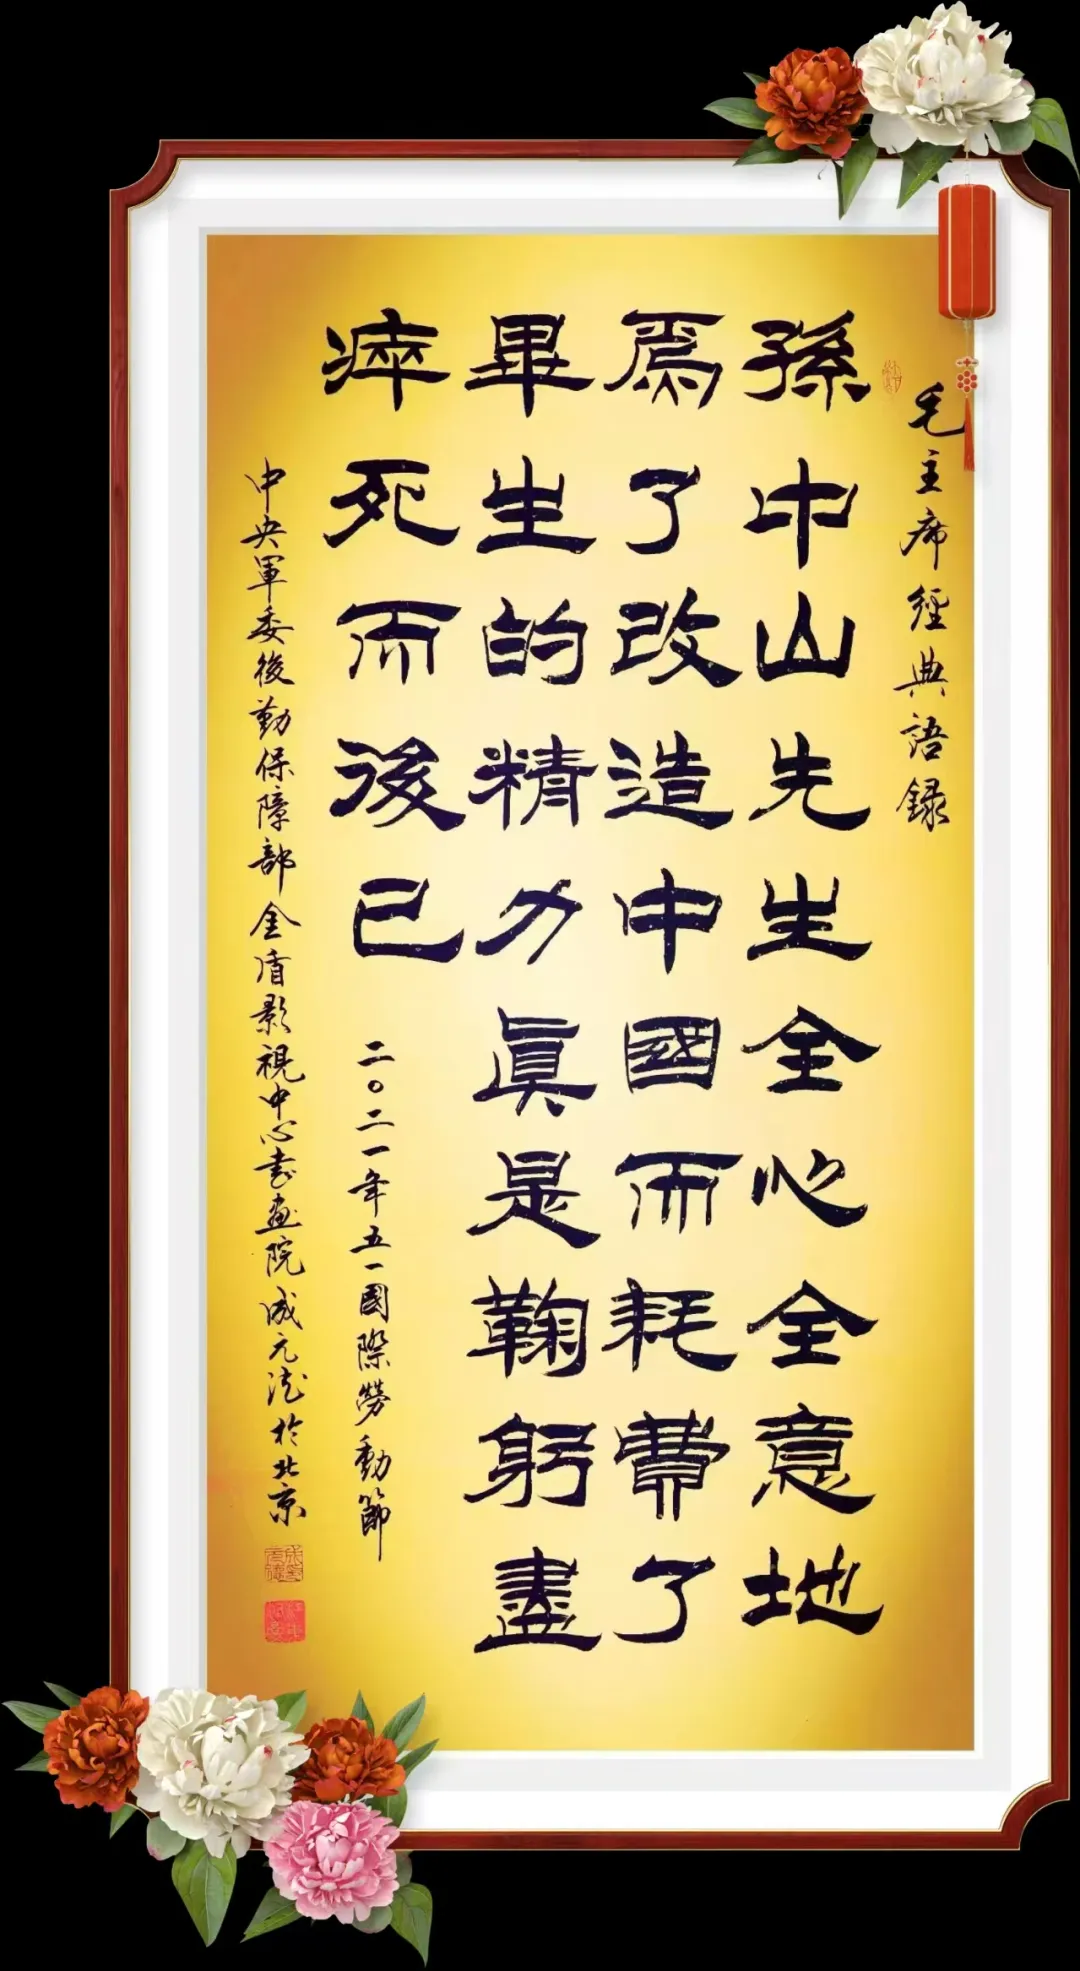 毛主席經典語録
孫中山先生全心全意地
爲了改造中國而耗費了
畢生的精力真是鞠躬盡
瘁死而後已
二〇二一年五一國際勞動節
中央軍委後勤保障部金盾影視中心书画院成元法於北京